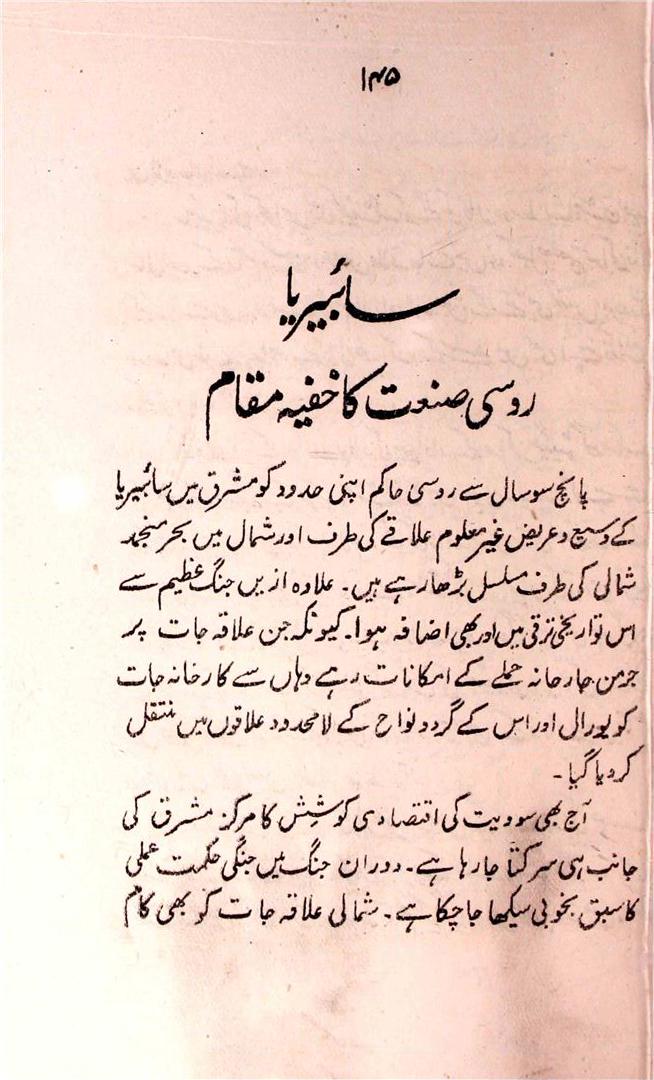 ۱۴۵
سائبیریا
روسی صنعت کا خفیہ مقام
پانچ سو سال سے روسی حاکم اپنی حدود کو مشرق میں سائبیریا
کے وسیع و عریض غیر معلوم علاقے کی طرف اور شمال میں بحر منجمد
شمالی کی طرف مسلسل بڑھا رہے ہیں۔ علاوہ ازیں جنگ عظیم سے
اس تواریخی ترقی میں اور بھی اضافہ ہوا۔ کیونکہ جن علاقہ جات پر
جرمن جارحانہ حملے کے امکانات رہے وہاں سے کارخانہ جات
کو یورال اور اس کے گرد و نواح کے لا محدود علاقوں میں منتقل
کر دیا گیا۔
آج بھی سوویت کی اقتصادی کوشش کا مرکز مشرق کی
جانب ہی سرکتا جا رہا ہے۔ دوران جنگ میں جنگی حکمت عملی
کا سبق بخوبی سیکھا جا چکا ہے۔ شمالی علاقہ جات کو بھی کام